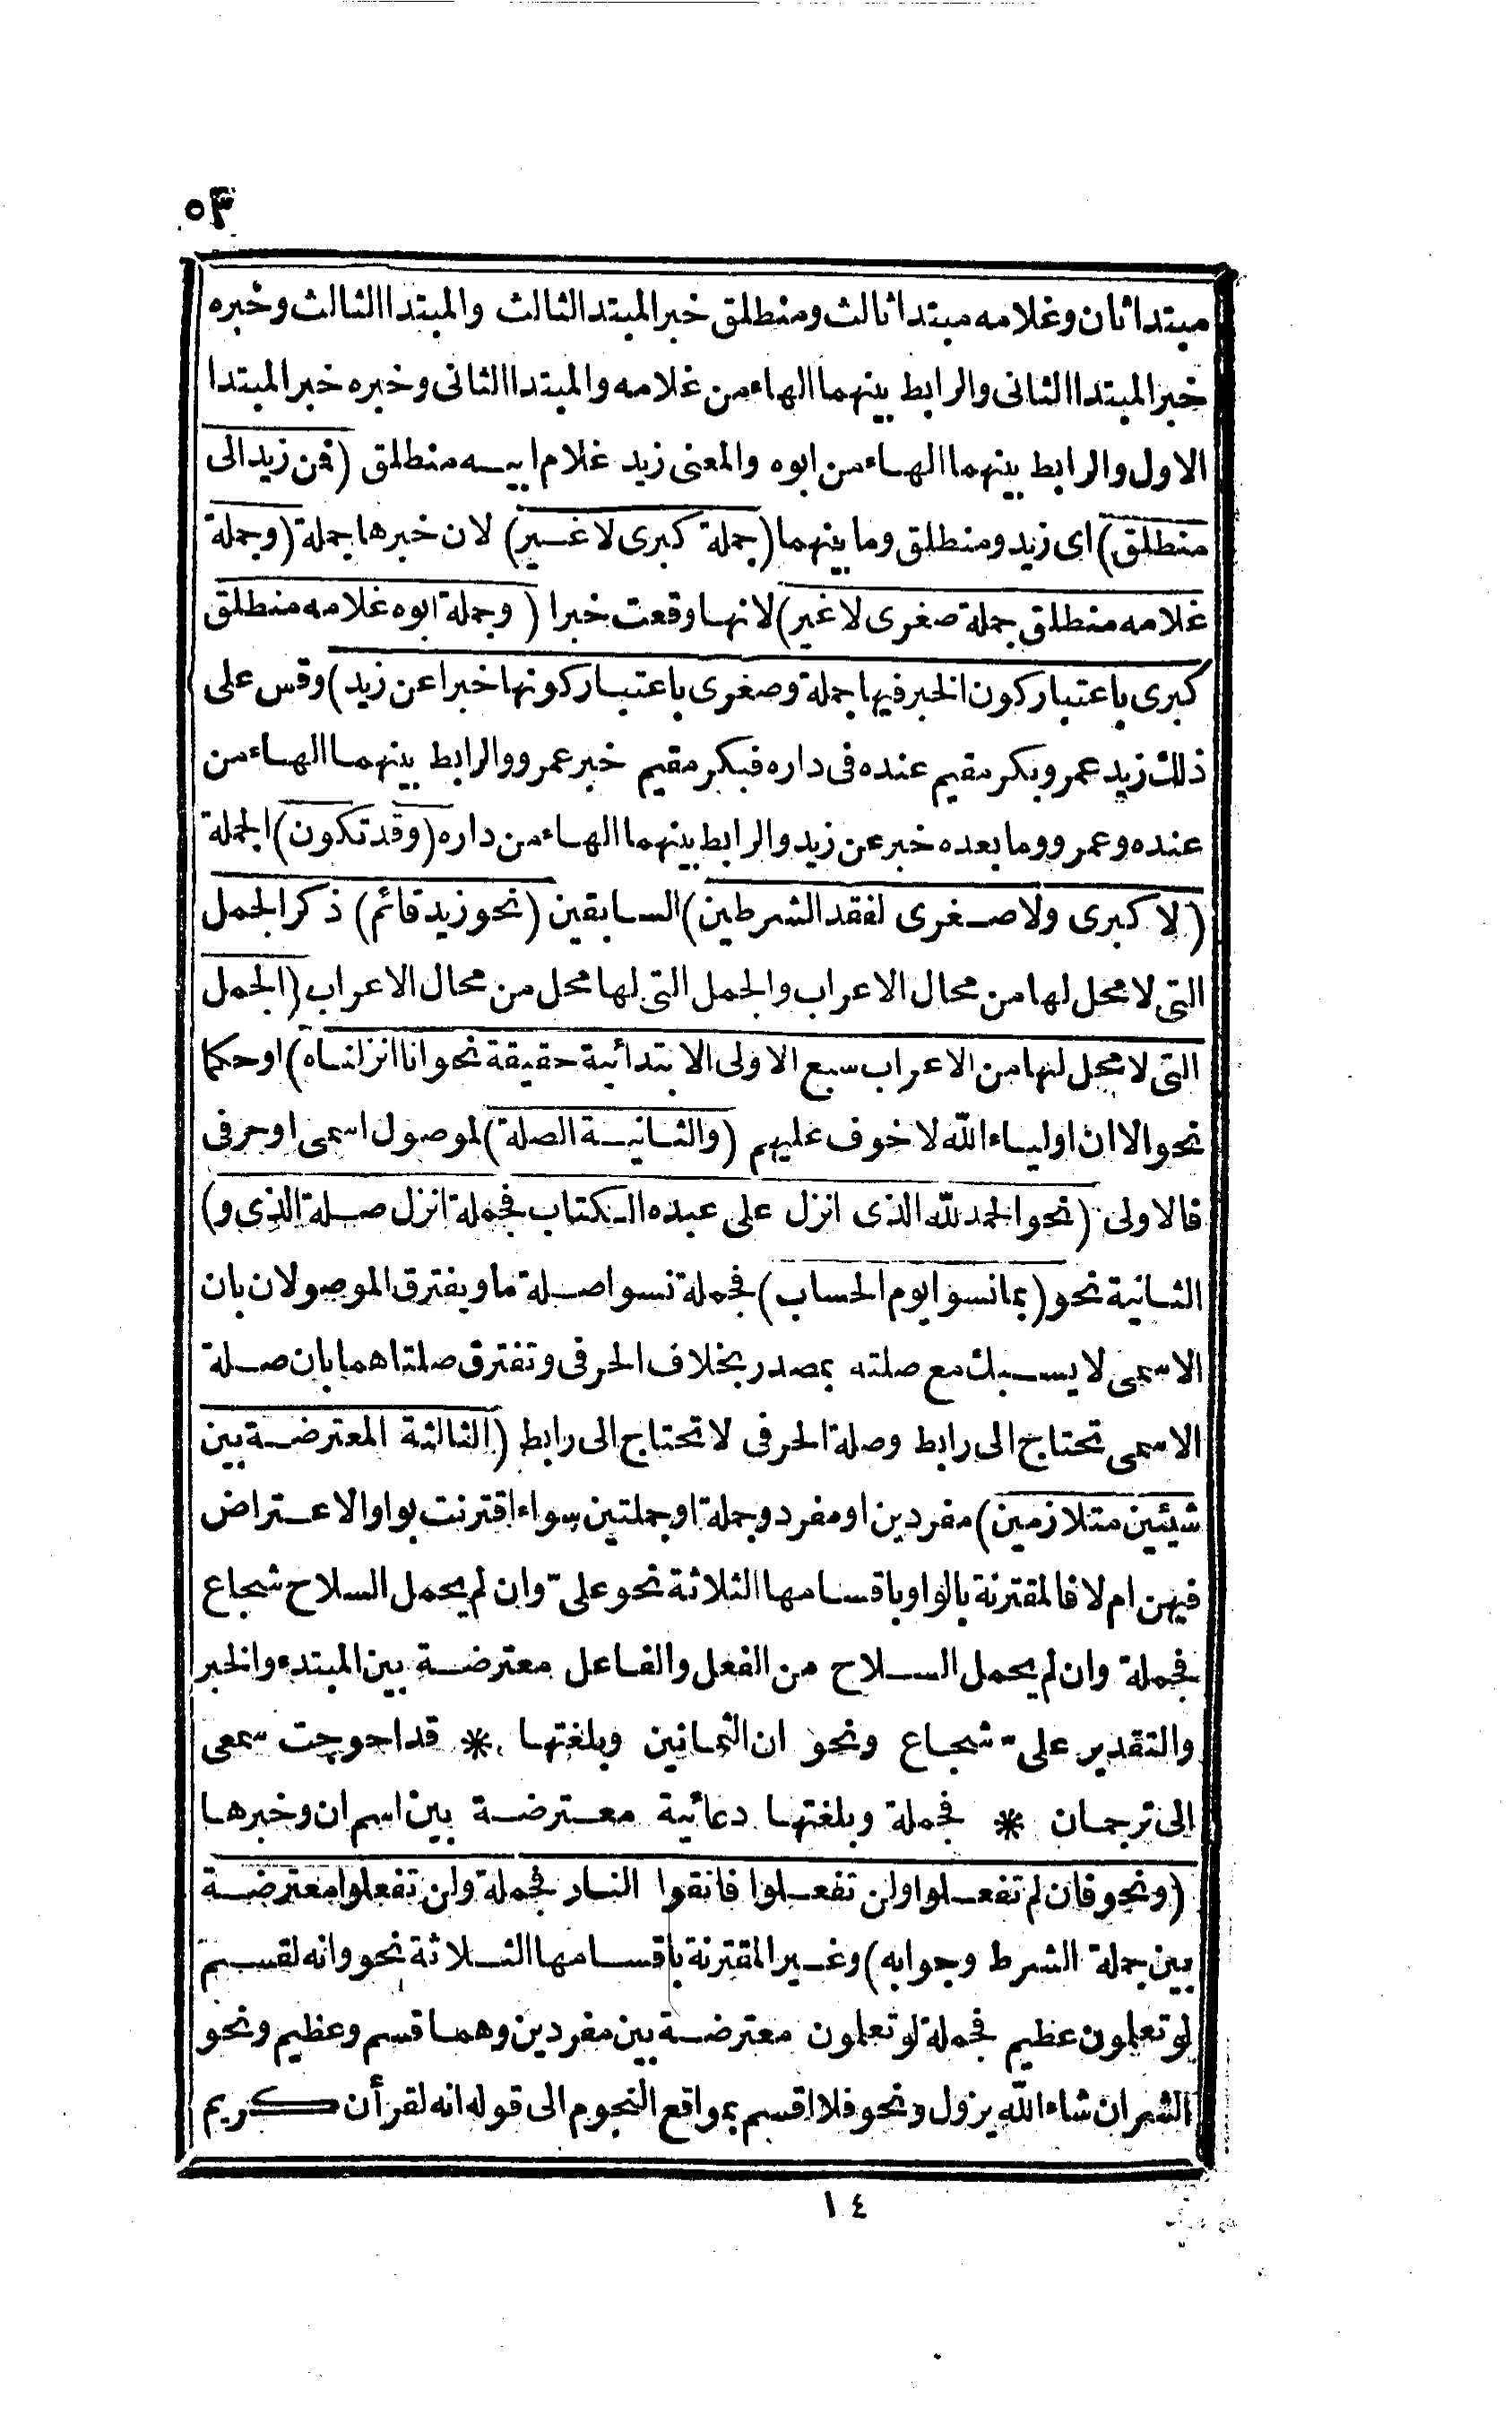 ٥٣
مبتدا ثان وغلامه مبتدا ثالث ومنطلق خبر المبتدا الثالث والمبتدا الثالث وخبره
خبر المبتدا الثانى والرابط بينهما الهاء من غلامه والمبتدا الثانى وخبره خبر المبتدا
الاول والرابط بينهما الهاء من ابوه والمعنى زيد غلام ابيه منطلق (فمن زيد الى
منطلق) اى زيد ومنطلق وما بينهما (جملة كبرى لا غير) لان خبرها جملة (وجملة
غلامه منطلق جملة صغرى لا غير) لانها وقعت خبرا (وجملة ابوه غلامه منطلق
كبرى باعتبار كون الخبر فيها جملة وصغرى باعتبار كونها خبرا عن زيد) وقس على
ذلك زيد عمرو بكر مقيم عنده فى داره فبكر مقيم خبر عمرو والرابط بينهما الهاء من
عنده وعمرو وما بعده خبر عن زيد والرابط بينهما الهاء من داره (وقد تكون) الجملة
(لا كبرى ولا صغرى لفقد الشرطين) السابقين (نحو زيد قائم) ذكر الجمل
التى لا محل لها من محال الاعراب والجمل التى لها محل من محال الاعراب (الجمل
التى لا محل لها من الاعراب سبع الاولى الابتدائية حقيقة نحو انا انزلناه) او حكما
نحو الا ان اولياء الله لا خوف عليهم (والثانية الصلة) لموصول اسمى او حرفى
فالاولى (نحو الحمد لله الذى انزل على عبده الكتاب فجملة انزل صلة الذى و)
الثانية نحو (بما نسوا يوم الحساب) فجملة نسوا صلة ما ويفترق الموصولان بان
الاسمى لا يسبك مع صلته بمصدر بخلاف الحرفى وتفترق صلتاهما بان صلة
الاسمى تحتاج الى رابط وصلة الحرفى لا تحتاج الى رابط (الثالثة المعترضة بين
شيئين متلازمين) مفردين او مفرد وجملة او جملتين سواء اقترنت بواو الاعتراض
فيهن ام لا فالمقترنة بالواو باقسامها الثلاثة نحو علىّ وان لم يحمل السلاح شجاع
فجملة وان لم يحمل السلاح من الفعل والفاعل معترضة بين المبتدء والخبر
والتقدير علىّ شجاع ونحو ان الثمانين وبلغتها * قد احوجت سمعى
الى ترجمان * فجملة وبلغتها دعائية معترضة بين اسم ان وخبرها
(ونحو فان لم تفعلوا ولن تفعلوا فاتقوا النار فجملة ولن تفعلوا معترضة
بين جملة الشرط وجوابه) وغير المقترنة باقسامها الثلاثة نحو وانه لقسم
لو تعلمون عظيم فجملة لو تعلمون معترضة بين مفردين وهما قسم وعظيم ونحو
الشر ان شاء الله يزول ونحو فلا اقسم بمواقع النجوم الى قوله انه لقرأن كريم
١٤